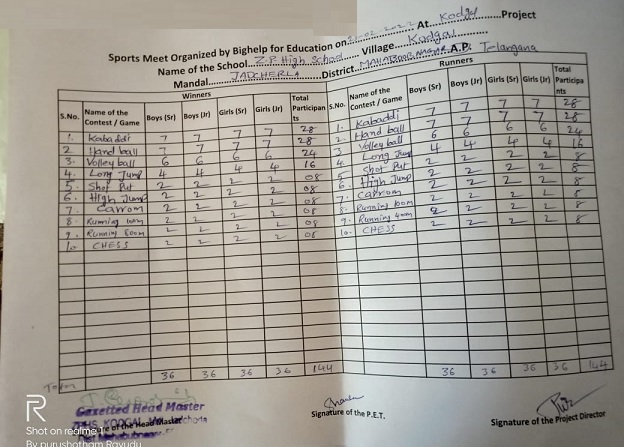 Sports Meet Organized by Bighelp for Education on 21-02-2022 At Kodgal Project
Name of the School Z.P High School Village Kodgal
Mandal JADCHERLA District MAHABOOBNAGAR A.P. Telangana
Winners
S.No. Name of the Contest / Game Boys (Sr) Boys (Jr) Girls (Sr) Girls (Jr) Total Participants
1. Kabaddi 7 7 7 7 28
2 Hand ball 7 7 7 7 28
3. Volley ball 6 6 6 6 24
4. Long Jump 4 4 4 4 16
5. Shot Put 2 2 2 2 08
6. High Jump 2 2 2 2 08
7. Carrom 2 2 2 2 08
8. Running 100m 2 2 2 2 08
9. Running 800m 2 2 2 2 08
10 CHESS 2 2 2 2 08
36 36 36 36 144
Runners
S.No. Name of the Contest / Game Boys (Sr) Boys (Jr) Girls (Sr) Girls (Jr) Total Participants
1. Kabaddi 7 7 7 7 28
2. Hand ball 7 7 7 7 28
3 Volley ball 6 6 6 6 24
4. Long Jump 4 4 4 4 16
5. Shot Put 2 2 2 2 8
6. High Jump 2 2 2 2 8
7. Carrom 2 2 2 2 8
8. Running 100m 2 2 2 2 8
9. Running 400m 2 2 2 2 8
10. CHESS 2 2 2 2 8
36 36 36 36 144
Total
Gazetted Head Master
Signature of the Head Master
Signature of the P.E.T.
Signature of the Project Director
R
Shot on realme
By purushotham Rayudu